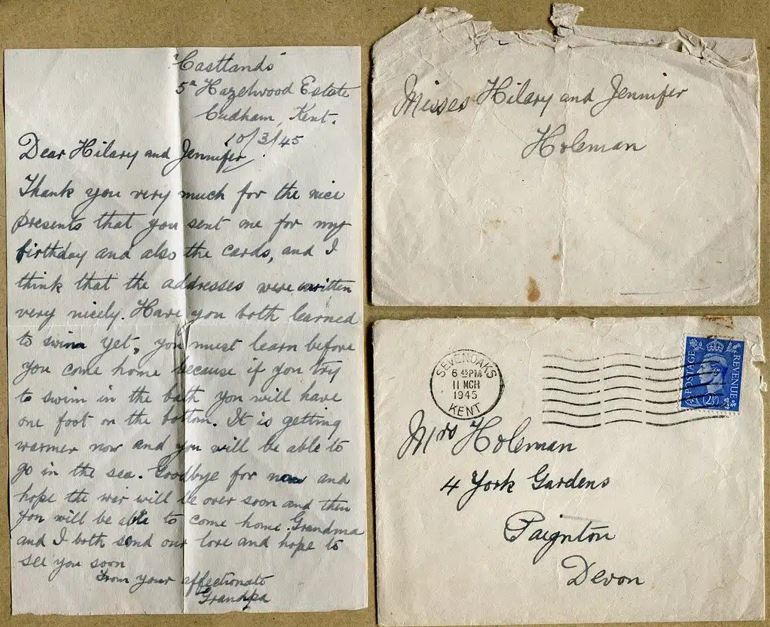 "Eastlands"
5a Hazelwood Estate
Cudham, Kent.
10/3/45
Dear Hilary and Jennifer,
Thank you very much for the nice
presents that you sent me for my
birthday and also the cards, and I
think that the addresses were written
very nicely. Have you both learned
to swim yet, you must learn before
you come home because if you try
to swim in the bath you will have
one foot on the bottom. It is getting
warmer now and you will be able to
go in the sea. Goodbye for now and
hope the war will be over soon and then
you will be able to come home. Grandma
and I both send our love and hope to
see you soon
From your affectionate
Grandpa
Misses Hilary and Jennifer
Holeman
SEVENOAKS
PM
11 MCH
1945
KENT
POSTAGE
REVENUE
2½D
Mrs Holeman
4 York Gardens
Paignton
Devon